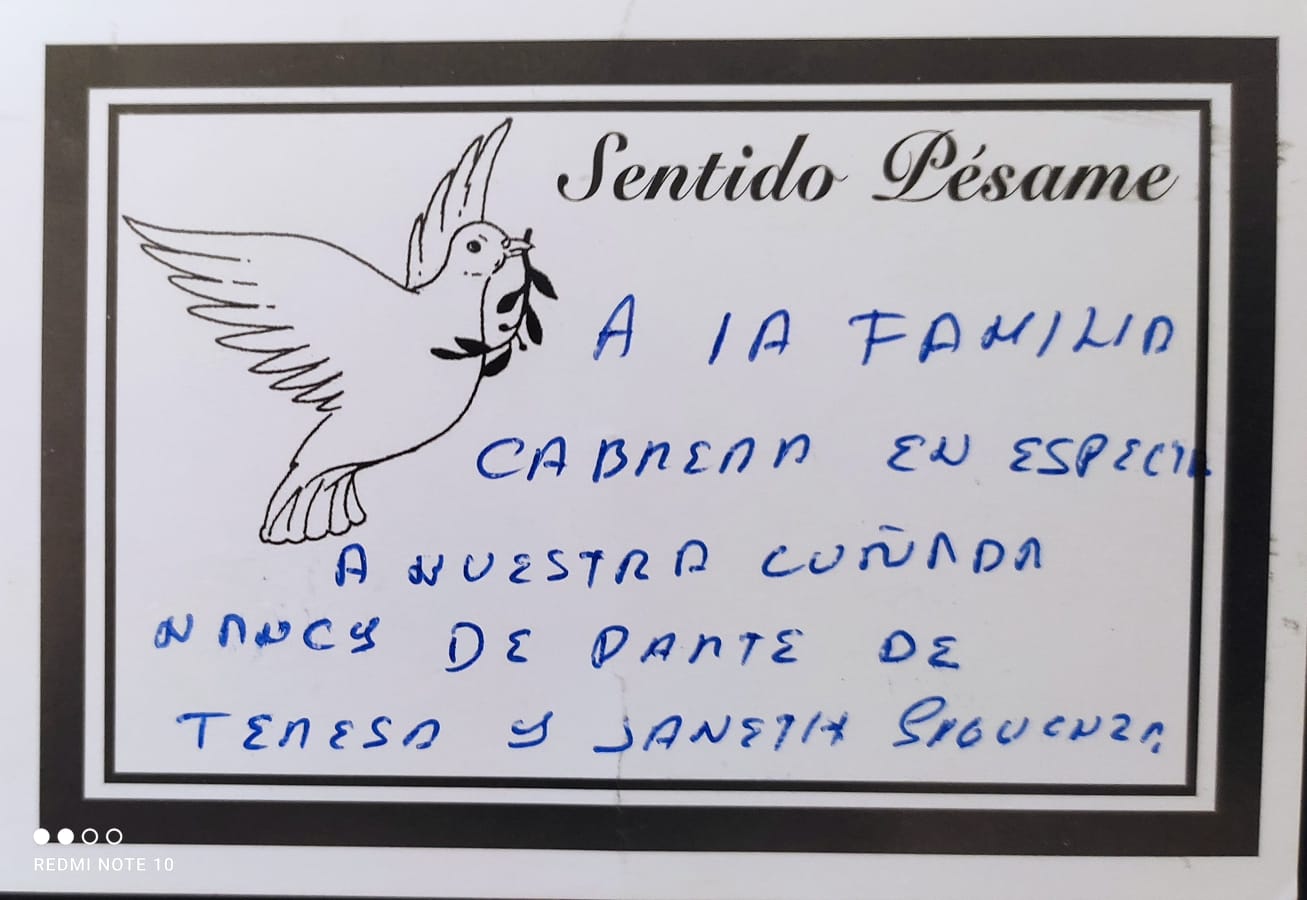 Sentido Pésame
A lA FAMILIA
CABRERA EN ESPECIAL
A NUESTRA CUÑADA
NANCY DE PARTE DE
TERESA Y JANETH SIGUENZA
REDMI NOTE 10